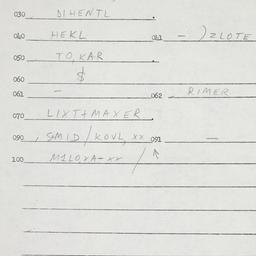 030 DIHENTL.
040 HEKL 041 - ) ZLOTE
050 TO, KAR
060 $
061 - 062 RIMER
070 LIXT+MAXER.
090 , SMID / KOVL, XX 091 —
100 M1LO,XA-XX /